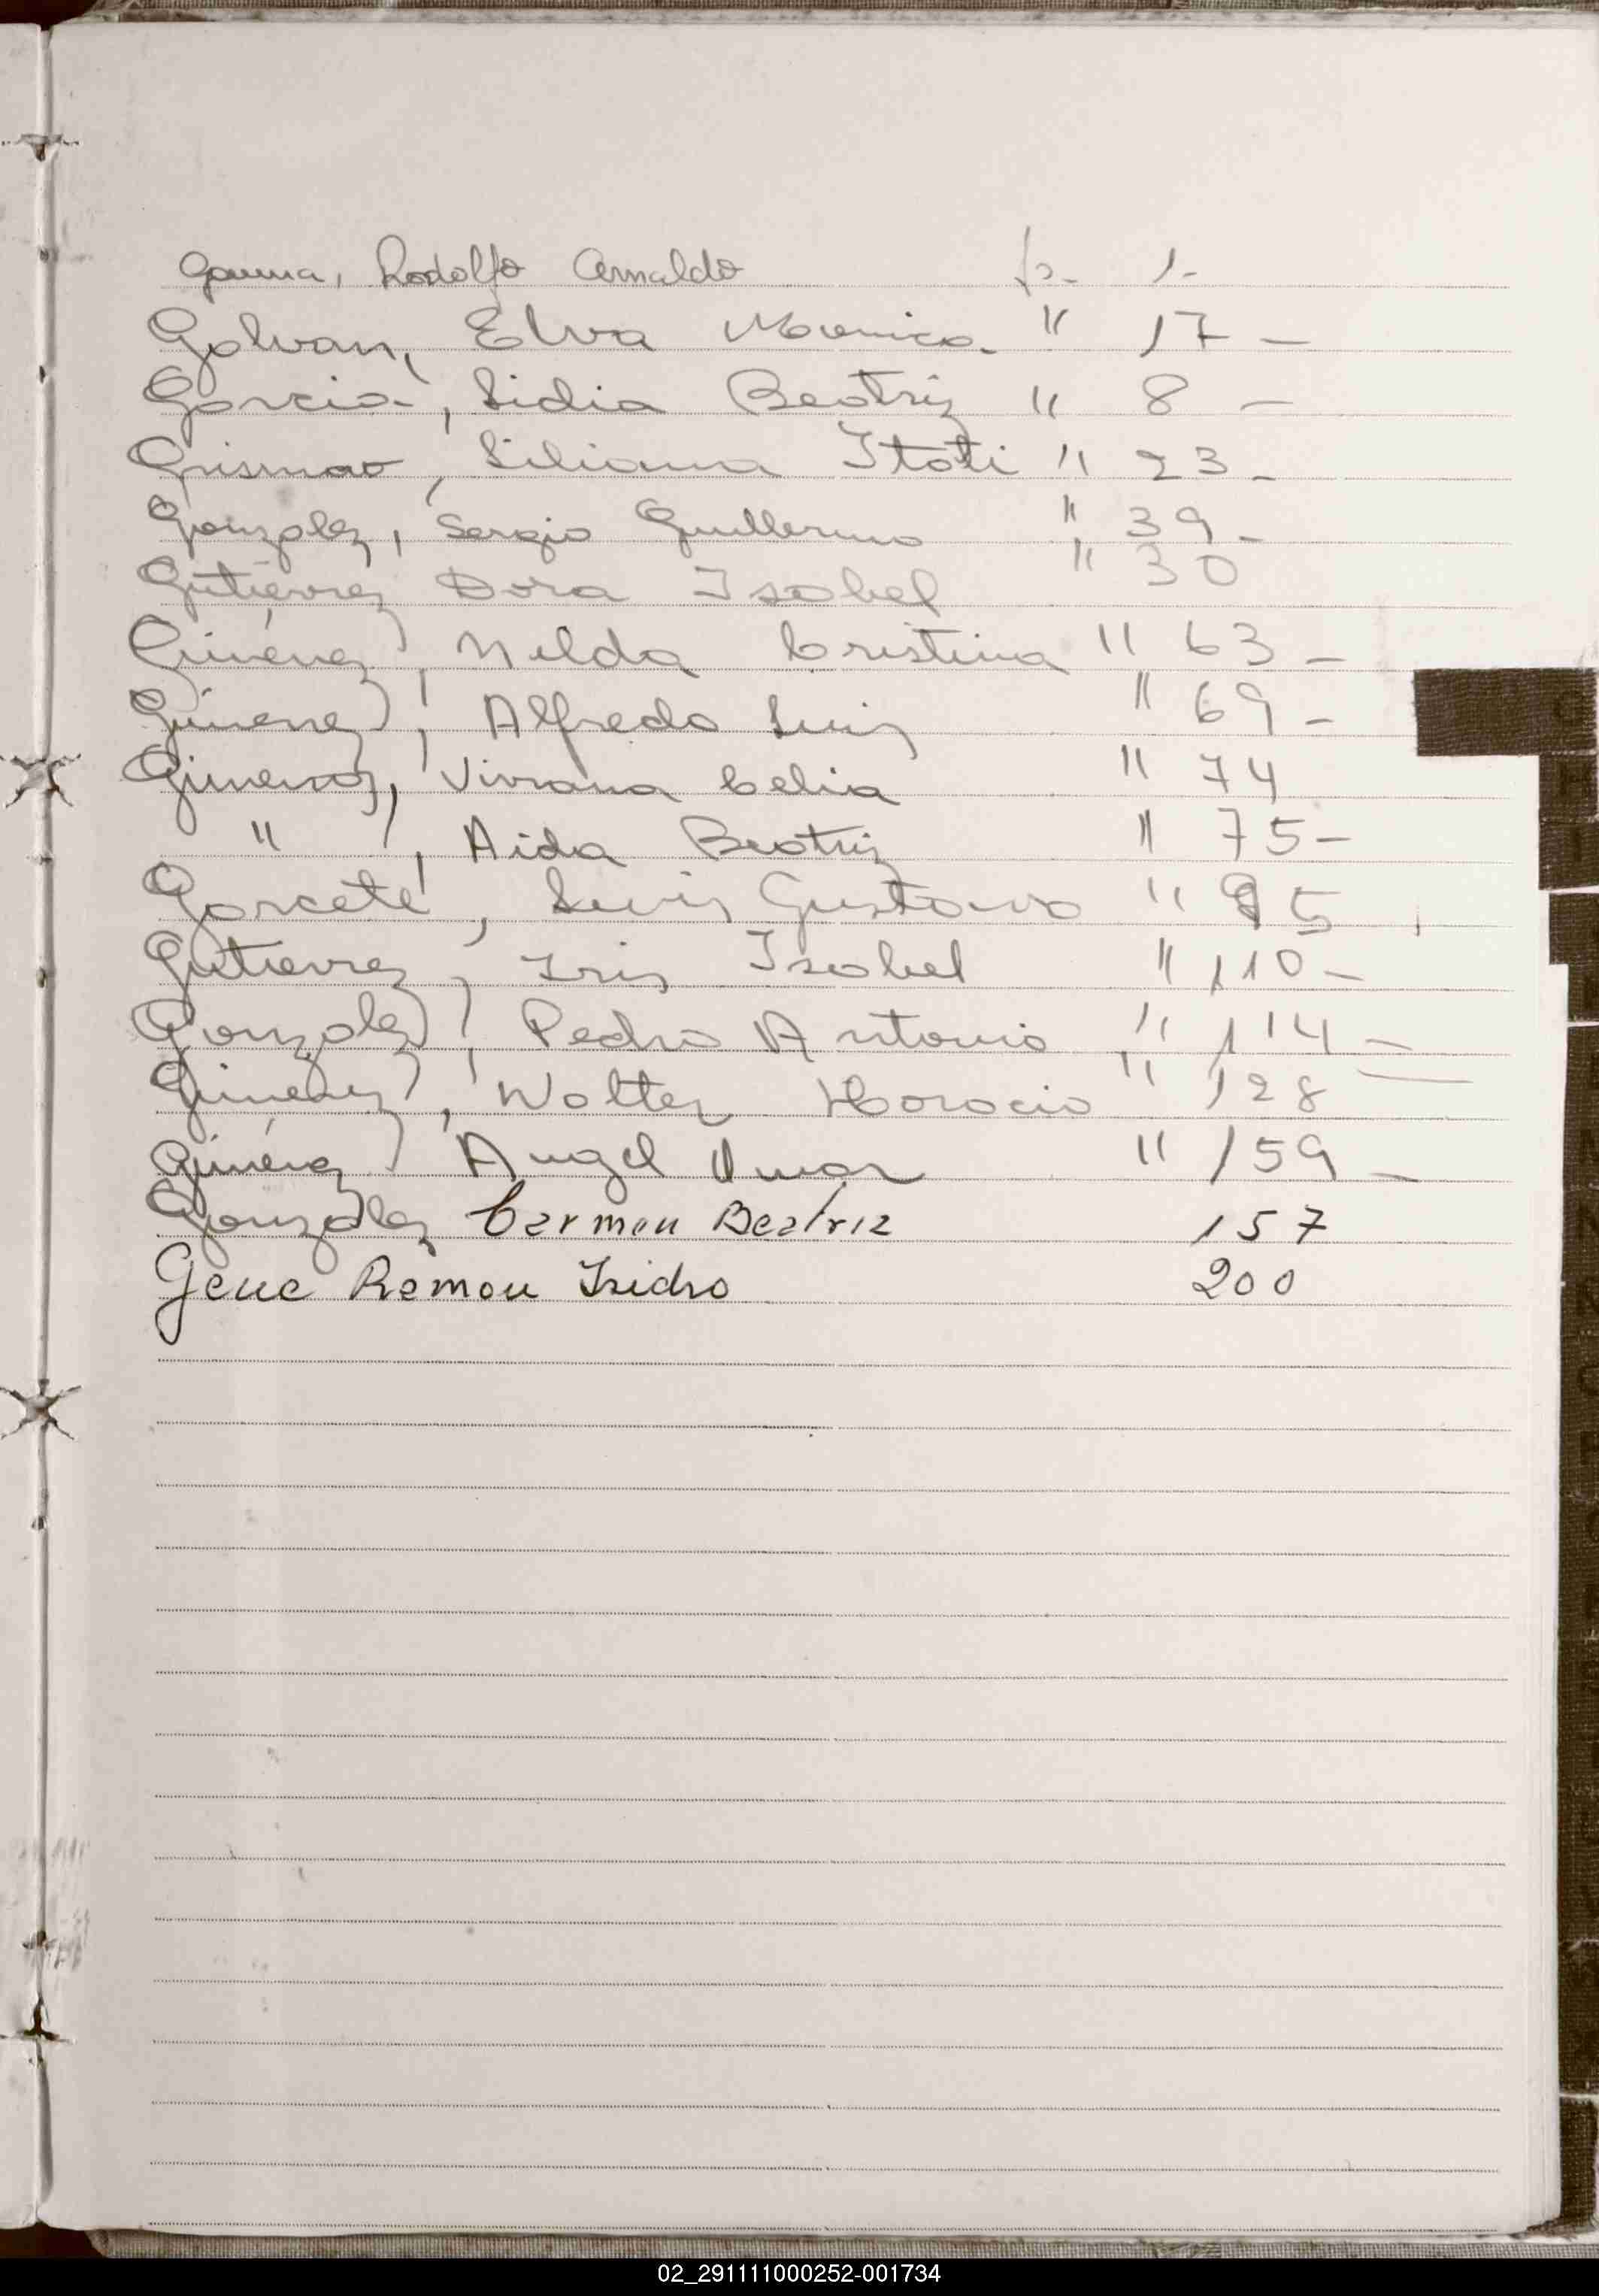 Gauna, Rodolfo Arnaldo fs. 1.-
Galvan, Elva Monica. " 17 -
Garcia, Lidia Beatriz " 8 -
Liliana Itati " 23 -
Gonzalez, Sergio Guillermo " 39 -
Gutiérrez Dora Isabel " 30
Giménez, Nilda Cristina " 63 -
Gimenez, Alfredo Luis " 69 -
Gimenez, Viviana Celia " 74
" , Aida Beatriz " 75 -
Garcete, Luis Gustavo " 95
Gutierrez, Iris Isabel " 110 -
Gonzalez, Pedro Antonio " 114 -
Gimenez, Walter Horacio " 128
Giménez Angel Omar " 159 -
Gonzalez Carmen Beatriz 157
Gene Ramon Isidro 200
02_291111000252-001734